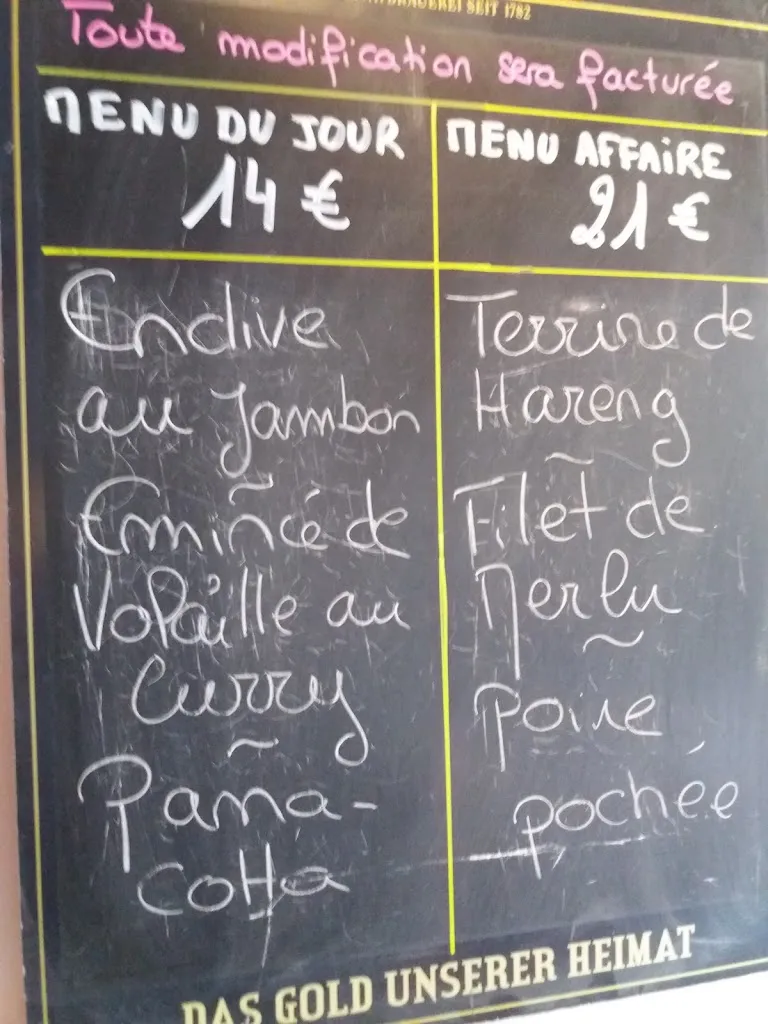 SEIT 1782
Toute modification sera facturée
MENU DU JOUR
14 €
Endive
au Jambon
~
Emincé de
Volaille au
Curry
~
Pana-
cotta
MENU AFFAIRE
21 €
Terrine de
Hareng
~
Filet de
Merlu
~
Poire
pochée
DAS GOLD UNSERER HEIMAT